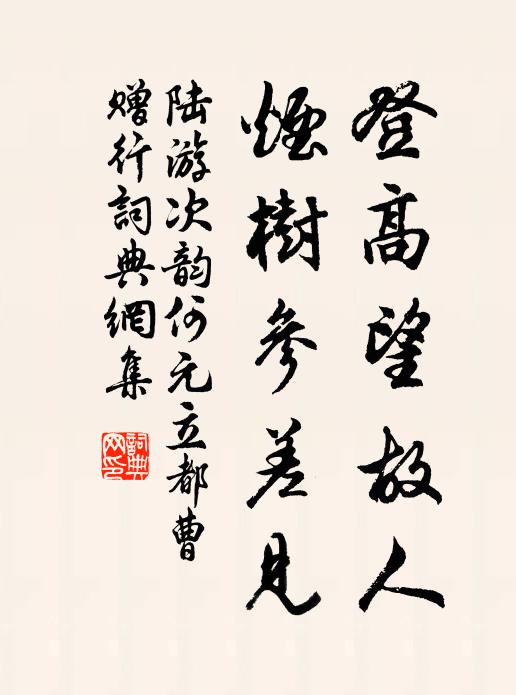 登高望故人
煙樹參差見
陆游次韵何元立都曹
赠行詞典網集
詞典
网印